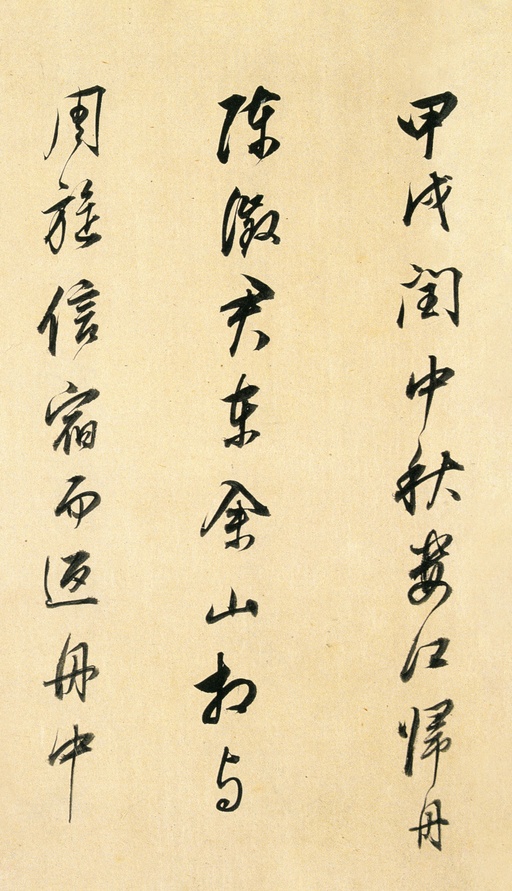 甲戌閏中秋婁江歸舟
陳徵君東佘山相与
周旋信宿而返舟中